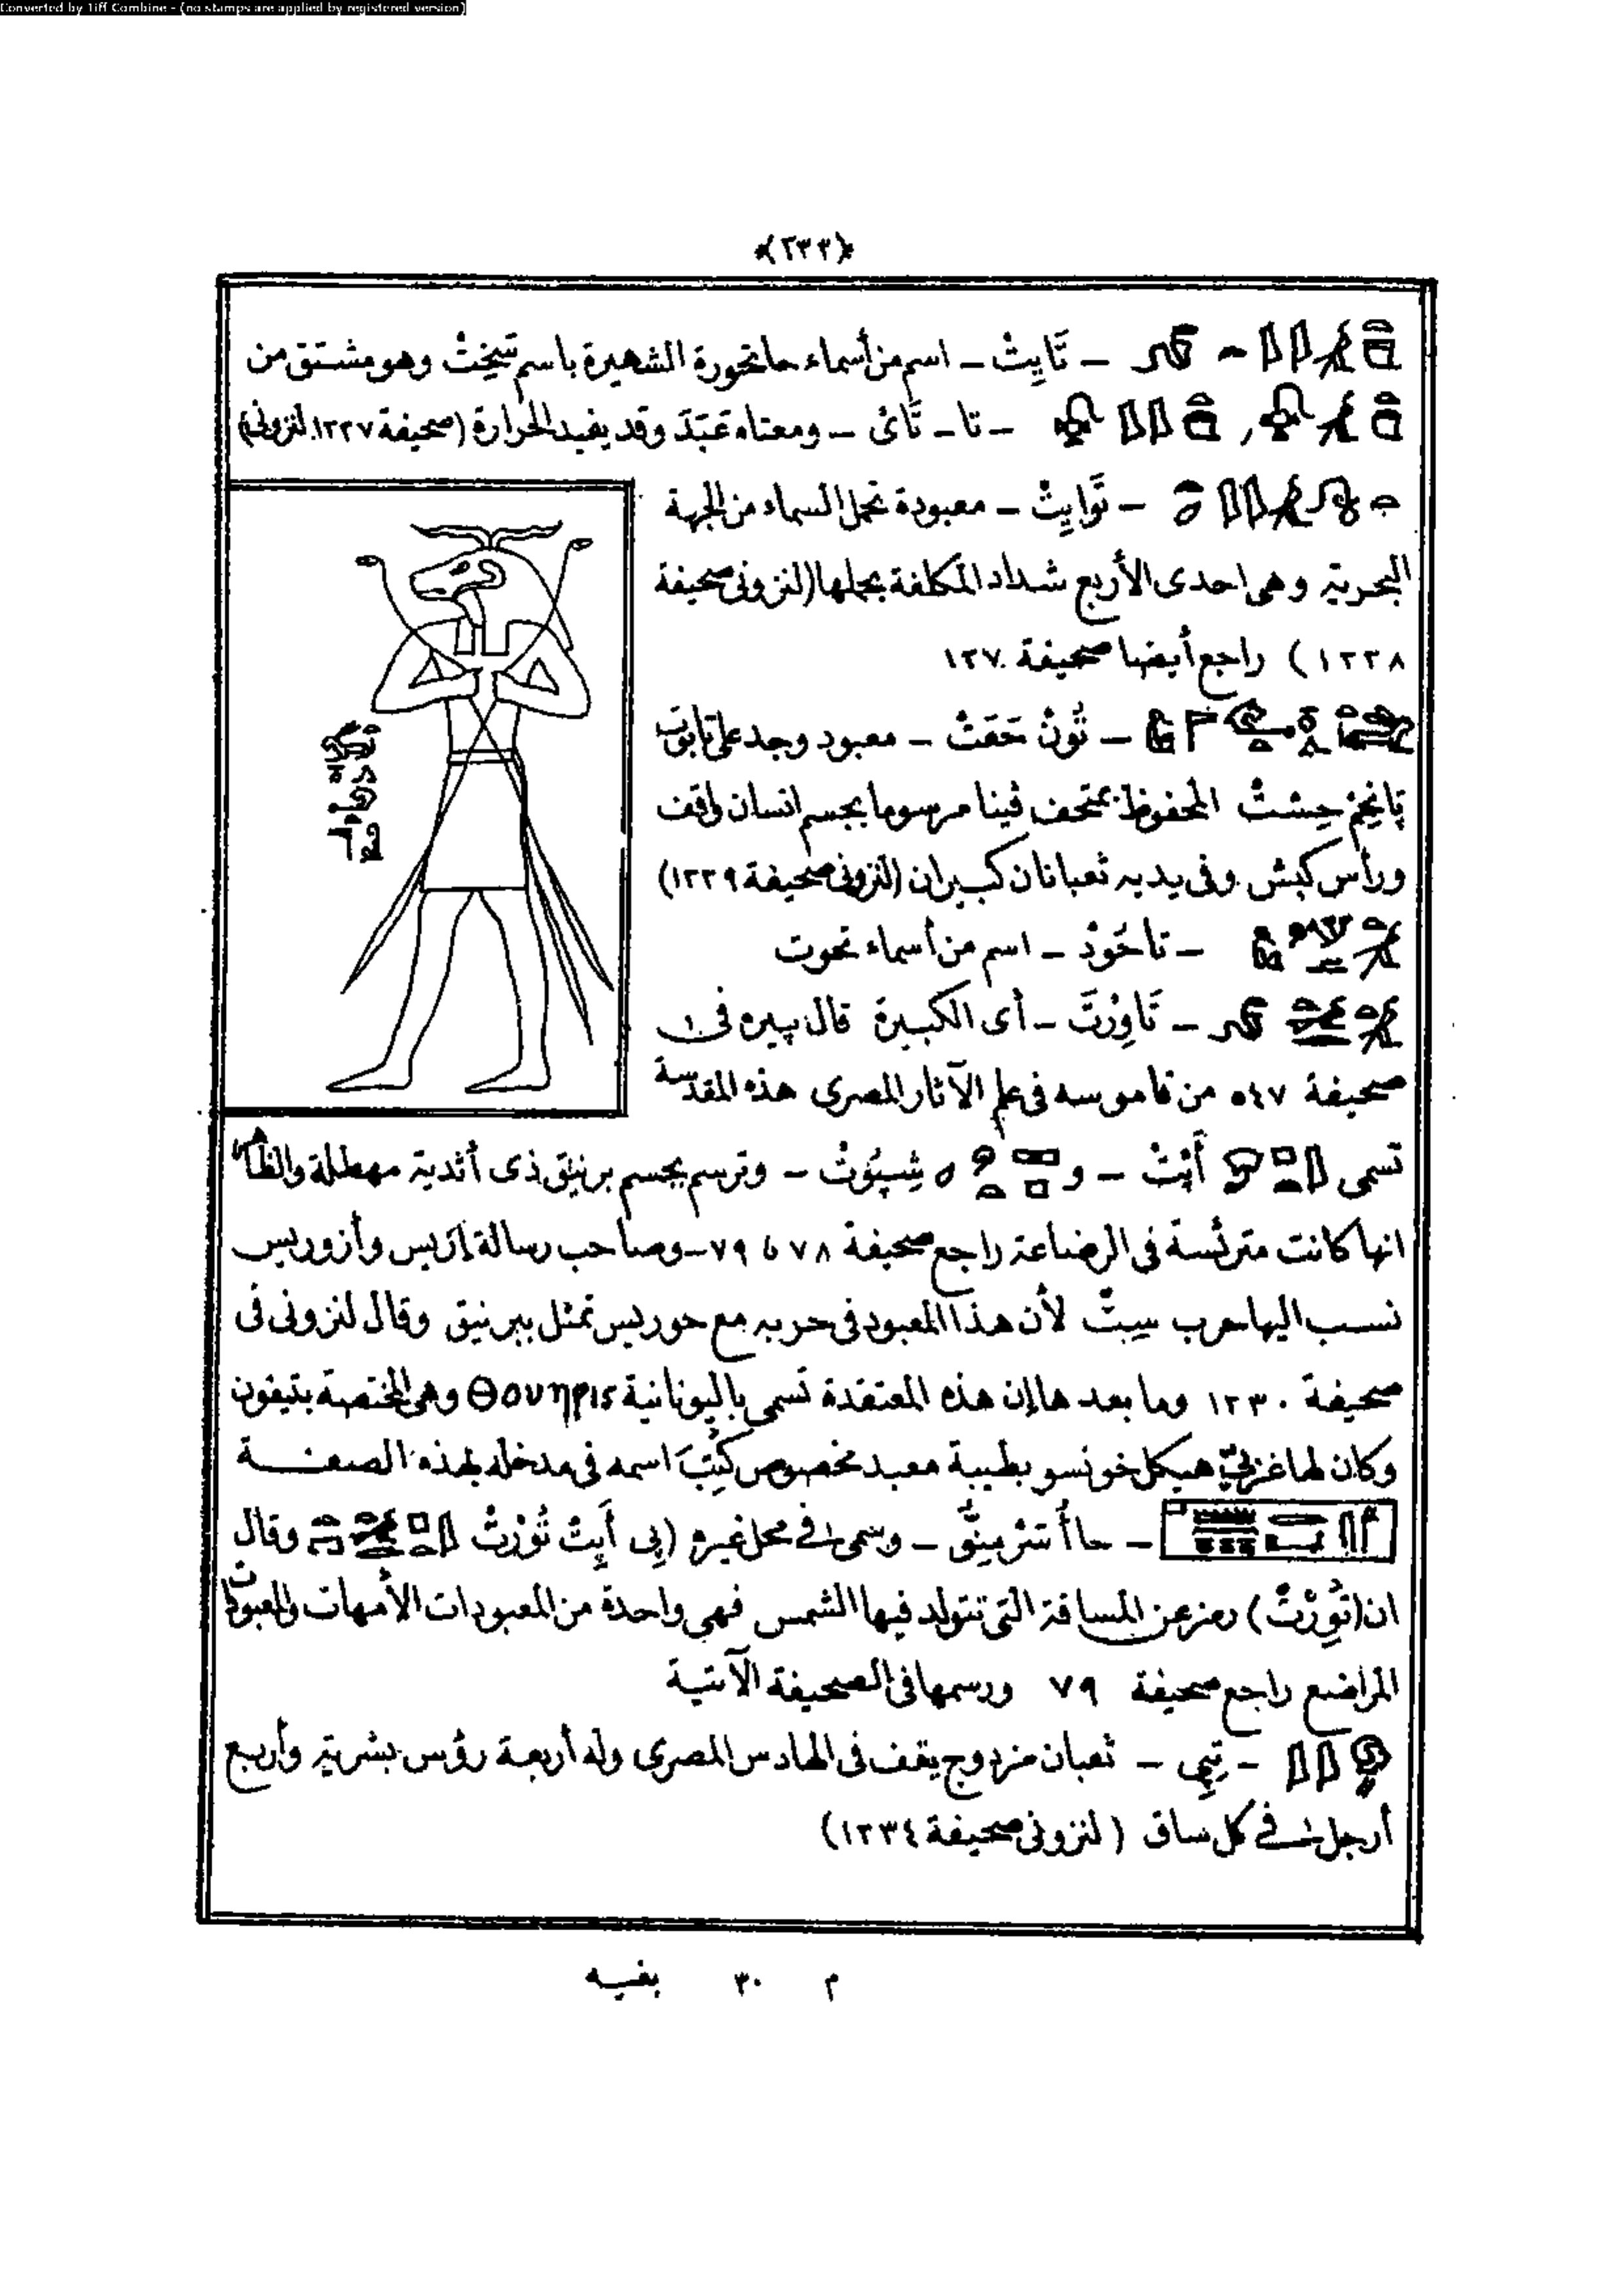 Converted by Tiff Combine - (no stamps are applied by registered version)
﴿٢٣٣﴾
– تَاِيتْ – اسم من أسماء حاتحورة الشهيرة باسم تَيْخِتْ وهو مشتق من
– تا – تَائ – ومعناه عَبَدَ وقد يفيد الحرارة (صحيفة ١٢٢٧ لنزونى)
– تَوايِتْ – معبودة تحمل السماء من الجهة
البحرية وهى احدى الأربع شداد المكلفة بحملها (لنزونى صحيفة
١٢٢٨) راجع أيضا صحيفة ١٢٧
– تُونْ حَعَتْ – معبود وجد على تابوت
المحفوظ بمتحف فينا مرسوما بجسم انسان واقف
ورأس كبش وفى يديه ثعبانان كبيران (لنزونى صحيفة ١٢٢٩)
– تاخُوذْ – اسم من أسماء تحوت
– تَاوِرْتَ – أى الكبيرة قال پيره فى
صحيفة ٥٤٧ من قاموسه فى علم الآثار المصرى هذه المقدسة
تسمى أَپْتْ – و شِپُوتْ – وترسم بجسم برنيق ذى أثدية مهطلة والظاهر
انها كانت مترئسة فى الرضاعة راجع صحيفة ٧٨ و ٧٩ – وصاحب رسالة إزيس وأزوريس
نسب اليها حرب سِيتْ لأن هذا المعبود فى حربه مع حوريس تمثل ببرنيق وقال لنزونى فى
صحيفة ١٢٣٠ وما بعدها إن هذه المعتقدة تسمى باليونانية Θουηρις وهى المختصة بتيفون
وكان لها غربىّ هيكل خونسو بطيبة معبد مخصوص كُتِبَ اسمه فى مدخله بهذه الصفة
– وسمى فى محل غيره (پى أَپِتْ تُوُرْتْ وقال
ان (تُوِرْتْ) رمز عن المسافة التى تتولد فيها الشمس فهى واحدة من المعبودات الأمهات والمعبودات
المراضع راجع صحيفة ٧٩ ورسمها فى الصحيفة الآتية
– تِپِى – ثعبان مزدوج يقف فى الهادس المصرى وله أربعة رؤس بشرية وأربع
أرجل فى كل ساق (لنزونى صحيفة ١٢٣٤)
م ٣٠ بغيه